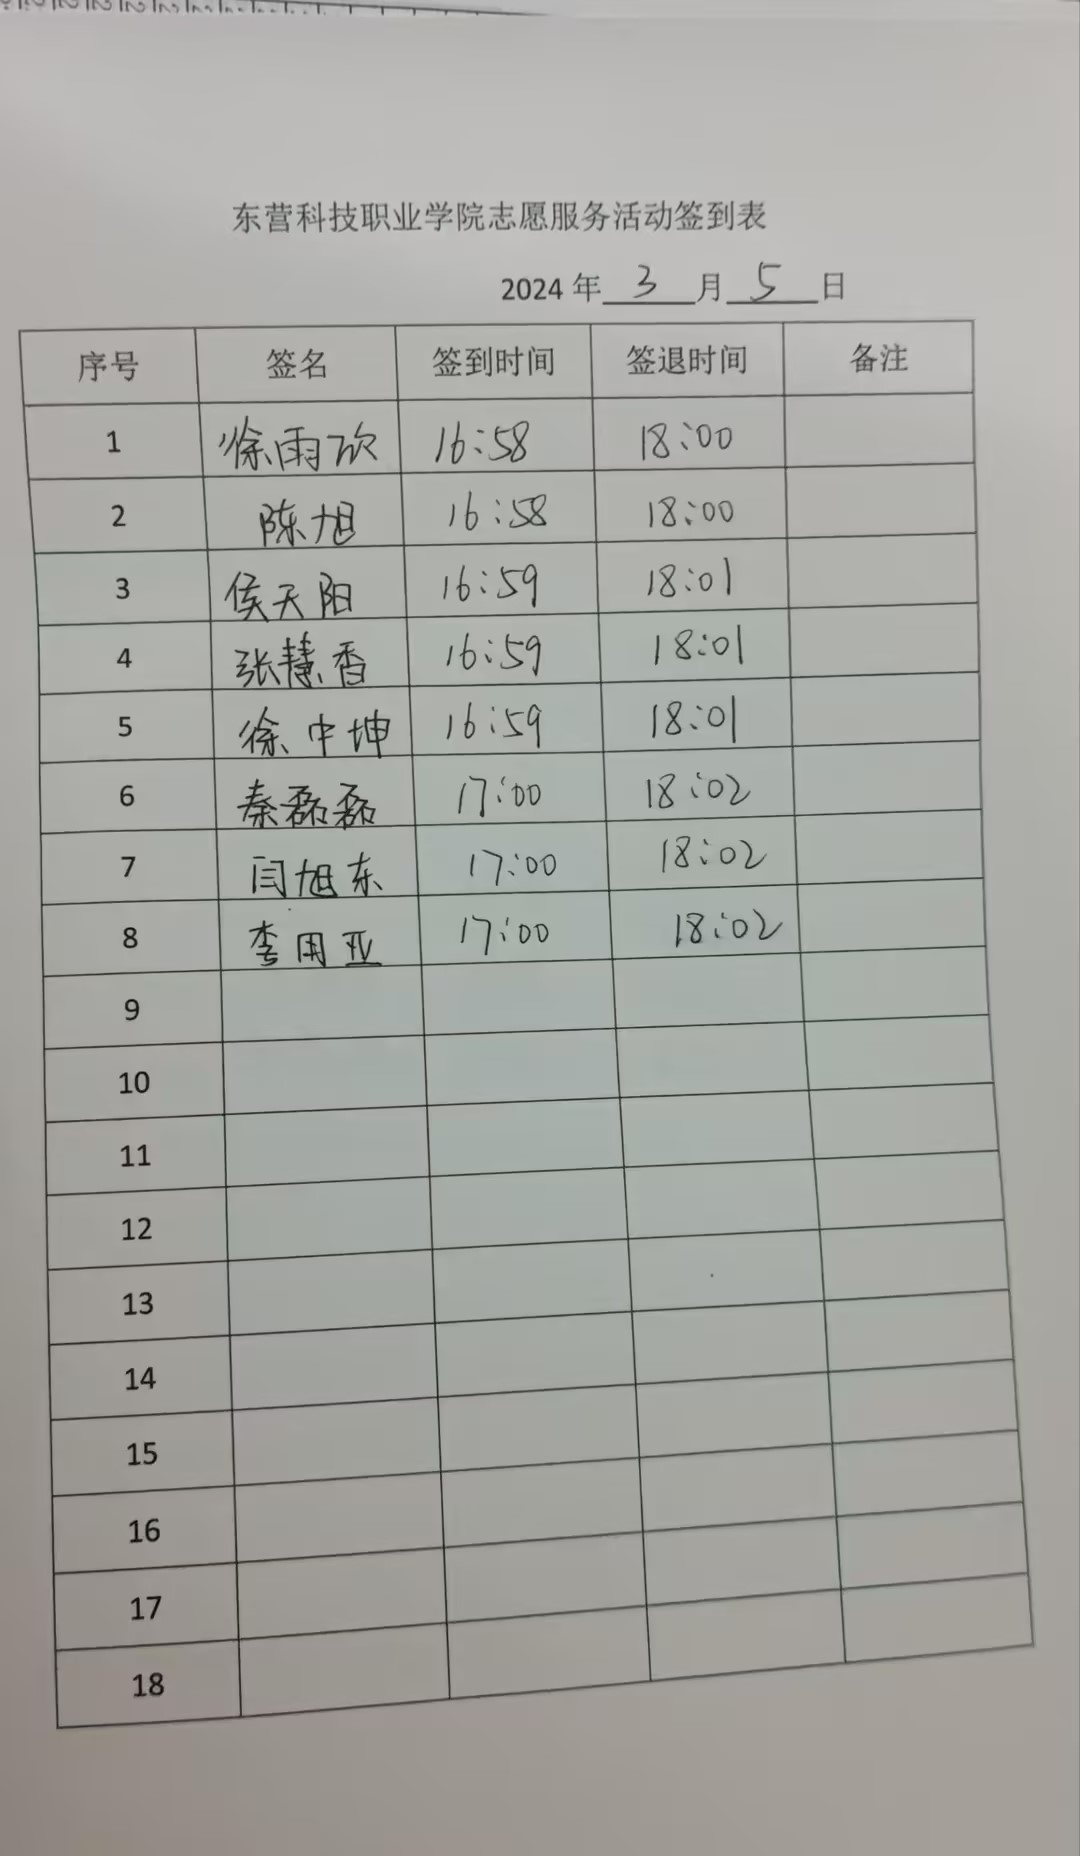 东营科技职业学院志愿服务活动签到表
2024 年 3 月 5 日
序号 签名 签到时间 签退时间 备注
1 徐雨欣 16:58 18:00
2 陈旭 16:58 18:00
3 侯天阳 16:59 18:01
4 张慧香 16:59 18:01
5 徐中坤 16:59 18:01
6 秦磊磊 17:00 18:02
7 闫旭东 17:00 18:02
8 李用亚 17:00 18:02
9
10
11
12
13
14
15
16
17
18